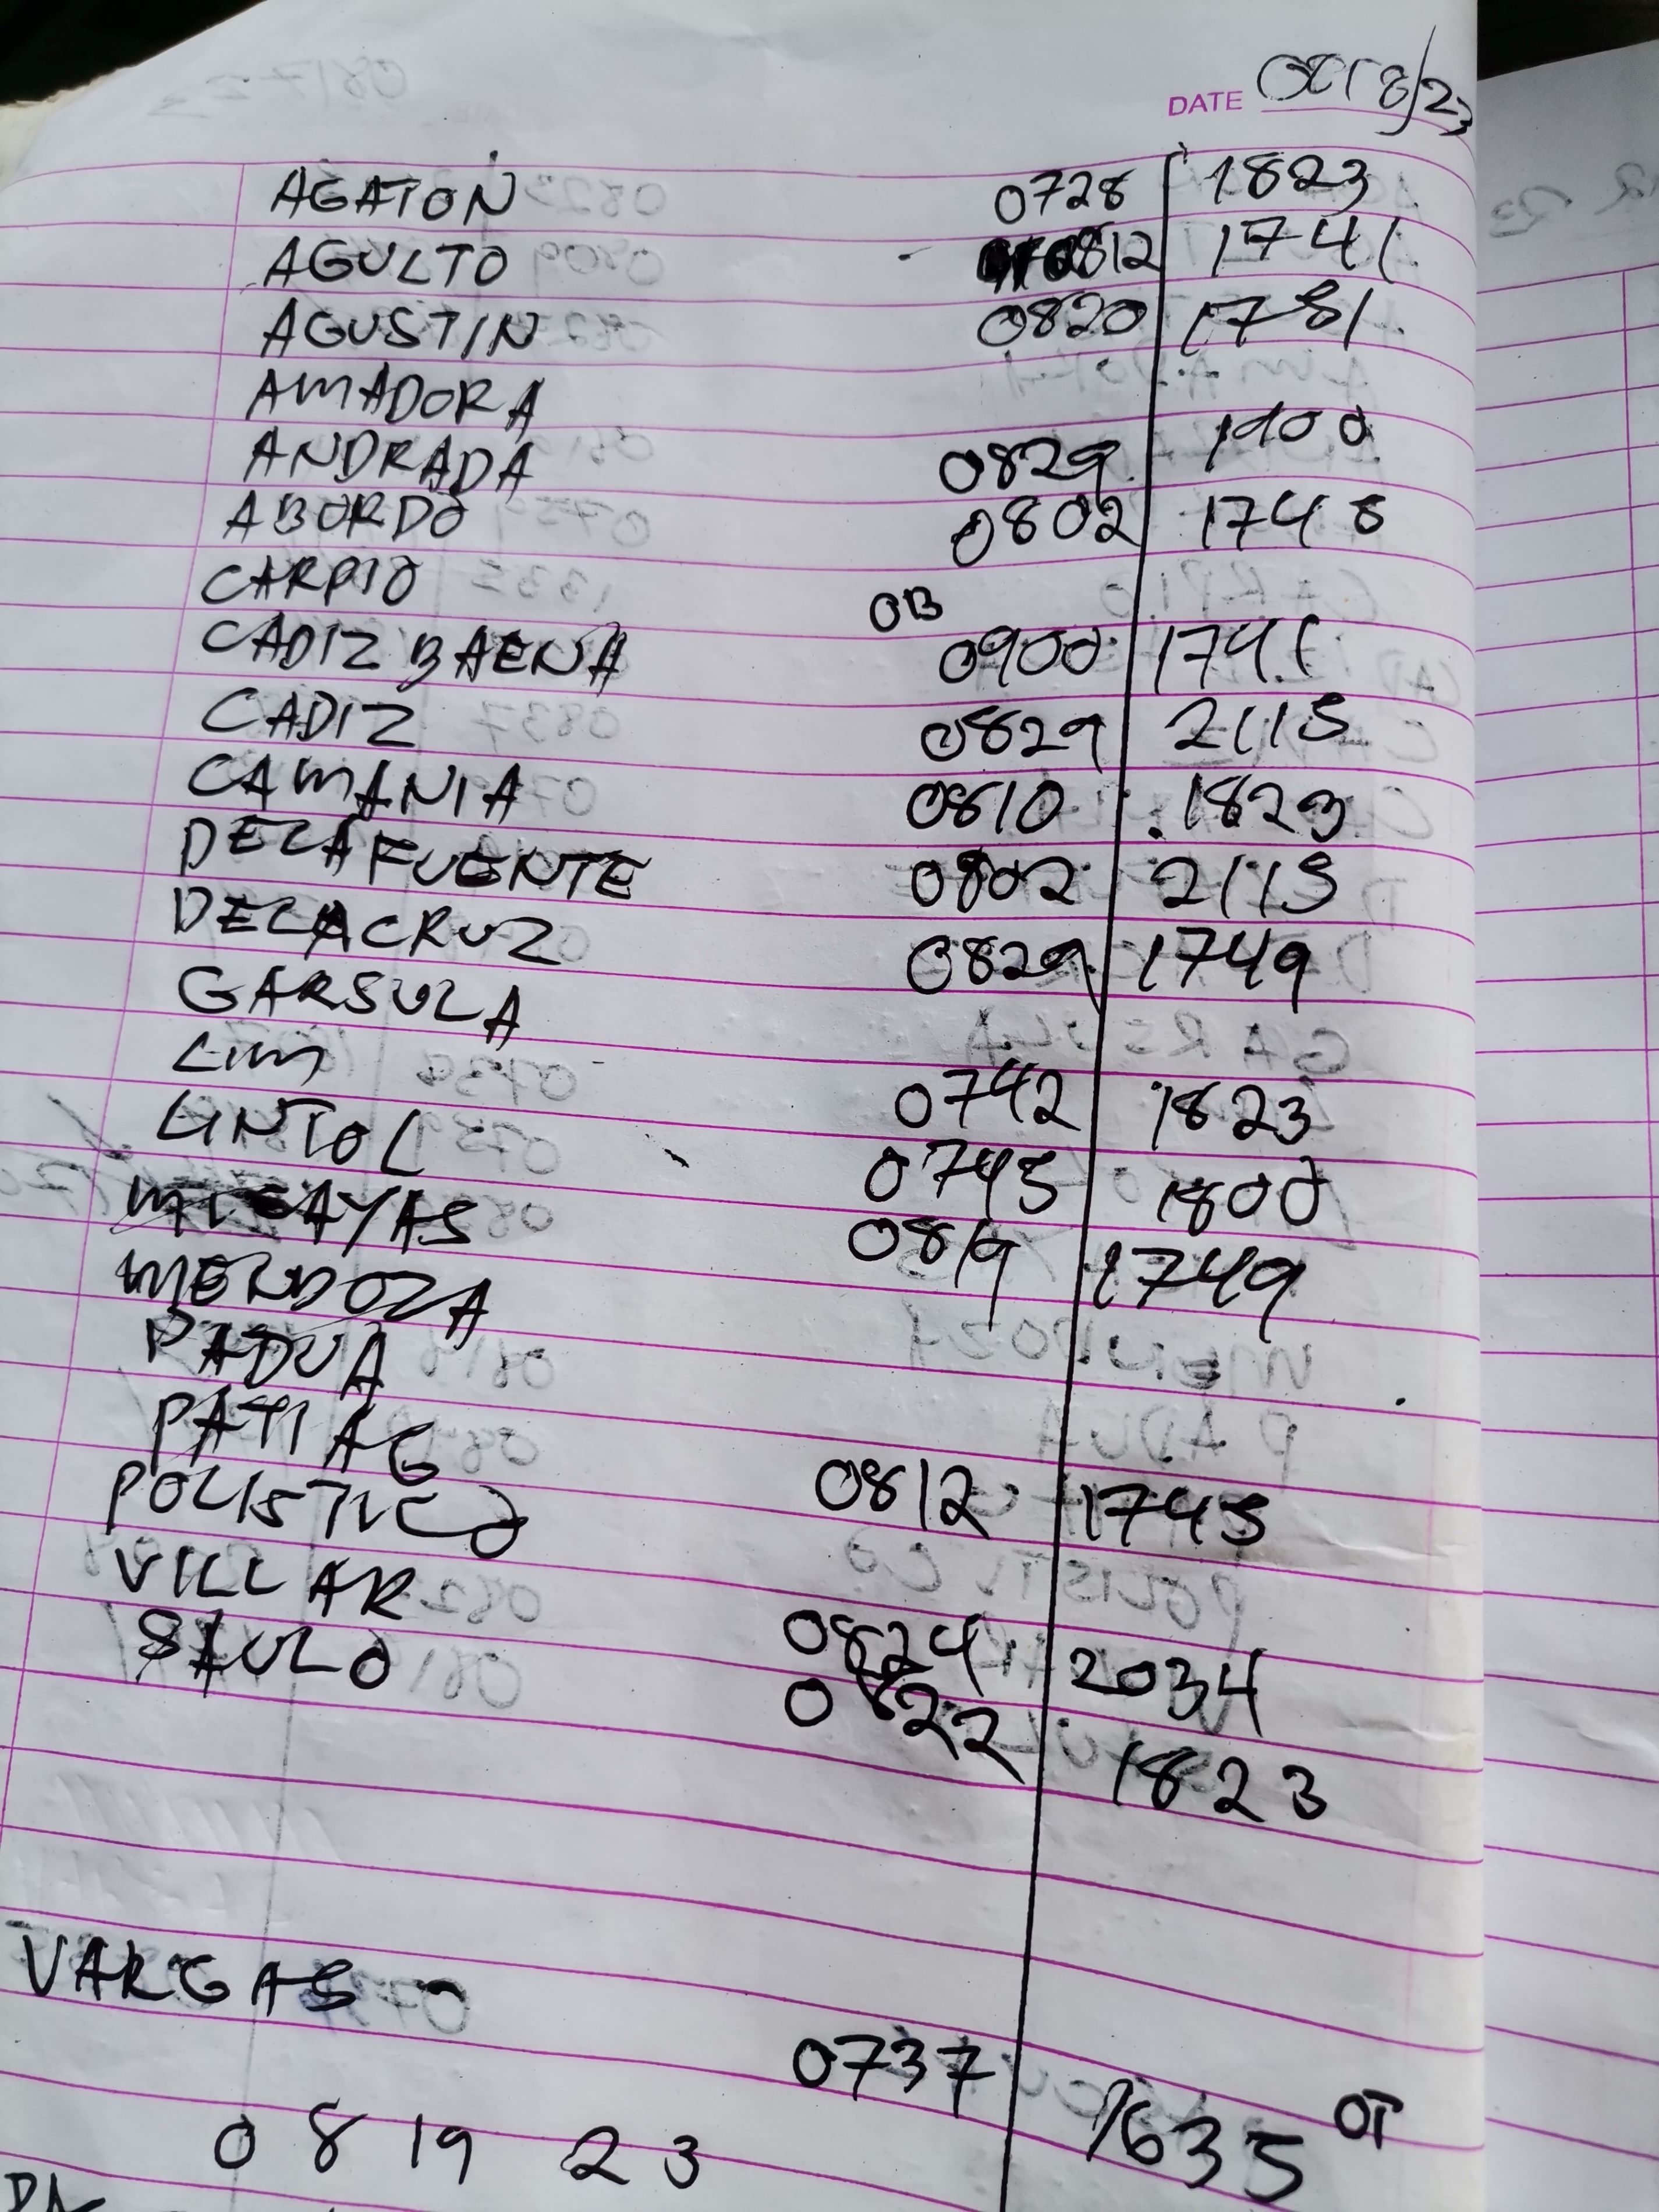 DATE OCT 8/23
AGATON 0728 1823
AGULTO 0812 1741
AGUSTIN 0820 1751
AMADORA
ANDRADA 0829 1900
ABORDO 0802 1748
CARPIO OB
CADIZ BAENA 0900 1741
CADIZ 0829 2115
CAMANIA 0810 1823
DELAFUENTE 0802 2115
DELACRUZ 0829 1749
GARSULA
LIM 0742 1823
LINTOL 0745 1800
0819 1749
MENDOZA
PADUA
PATIAG 0812 1745
POLISTICO
VILLAR 0824 2034
SAULO 0822 1823
VARGAS - 0737 1635 OT
0819 23